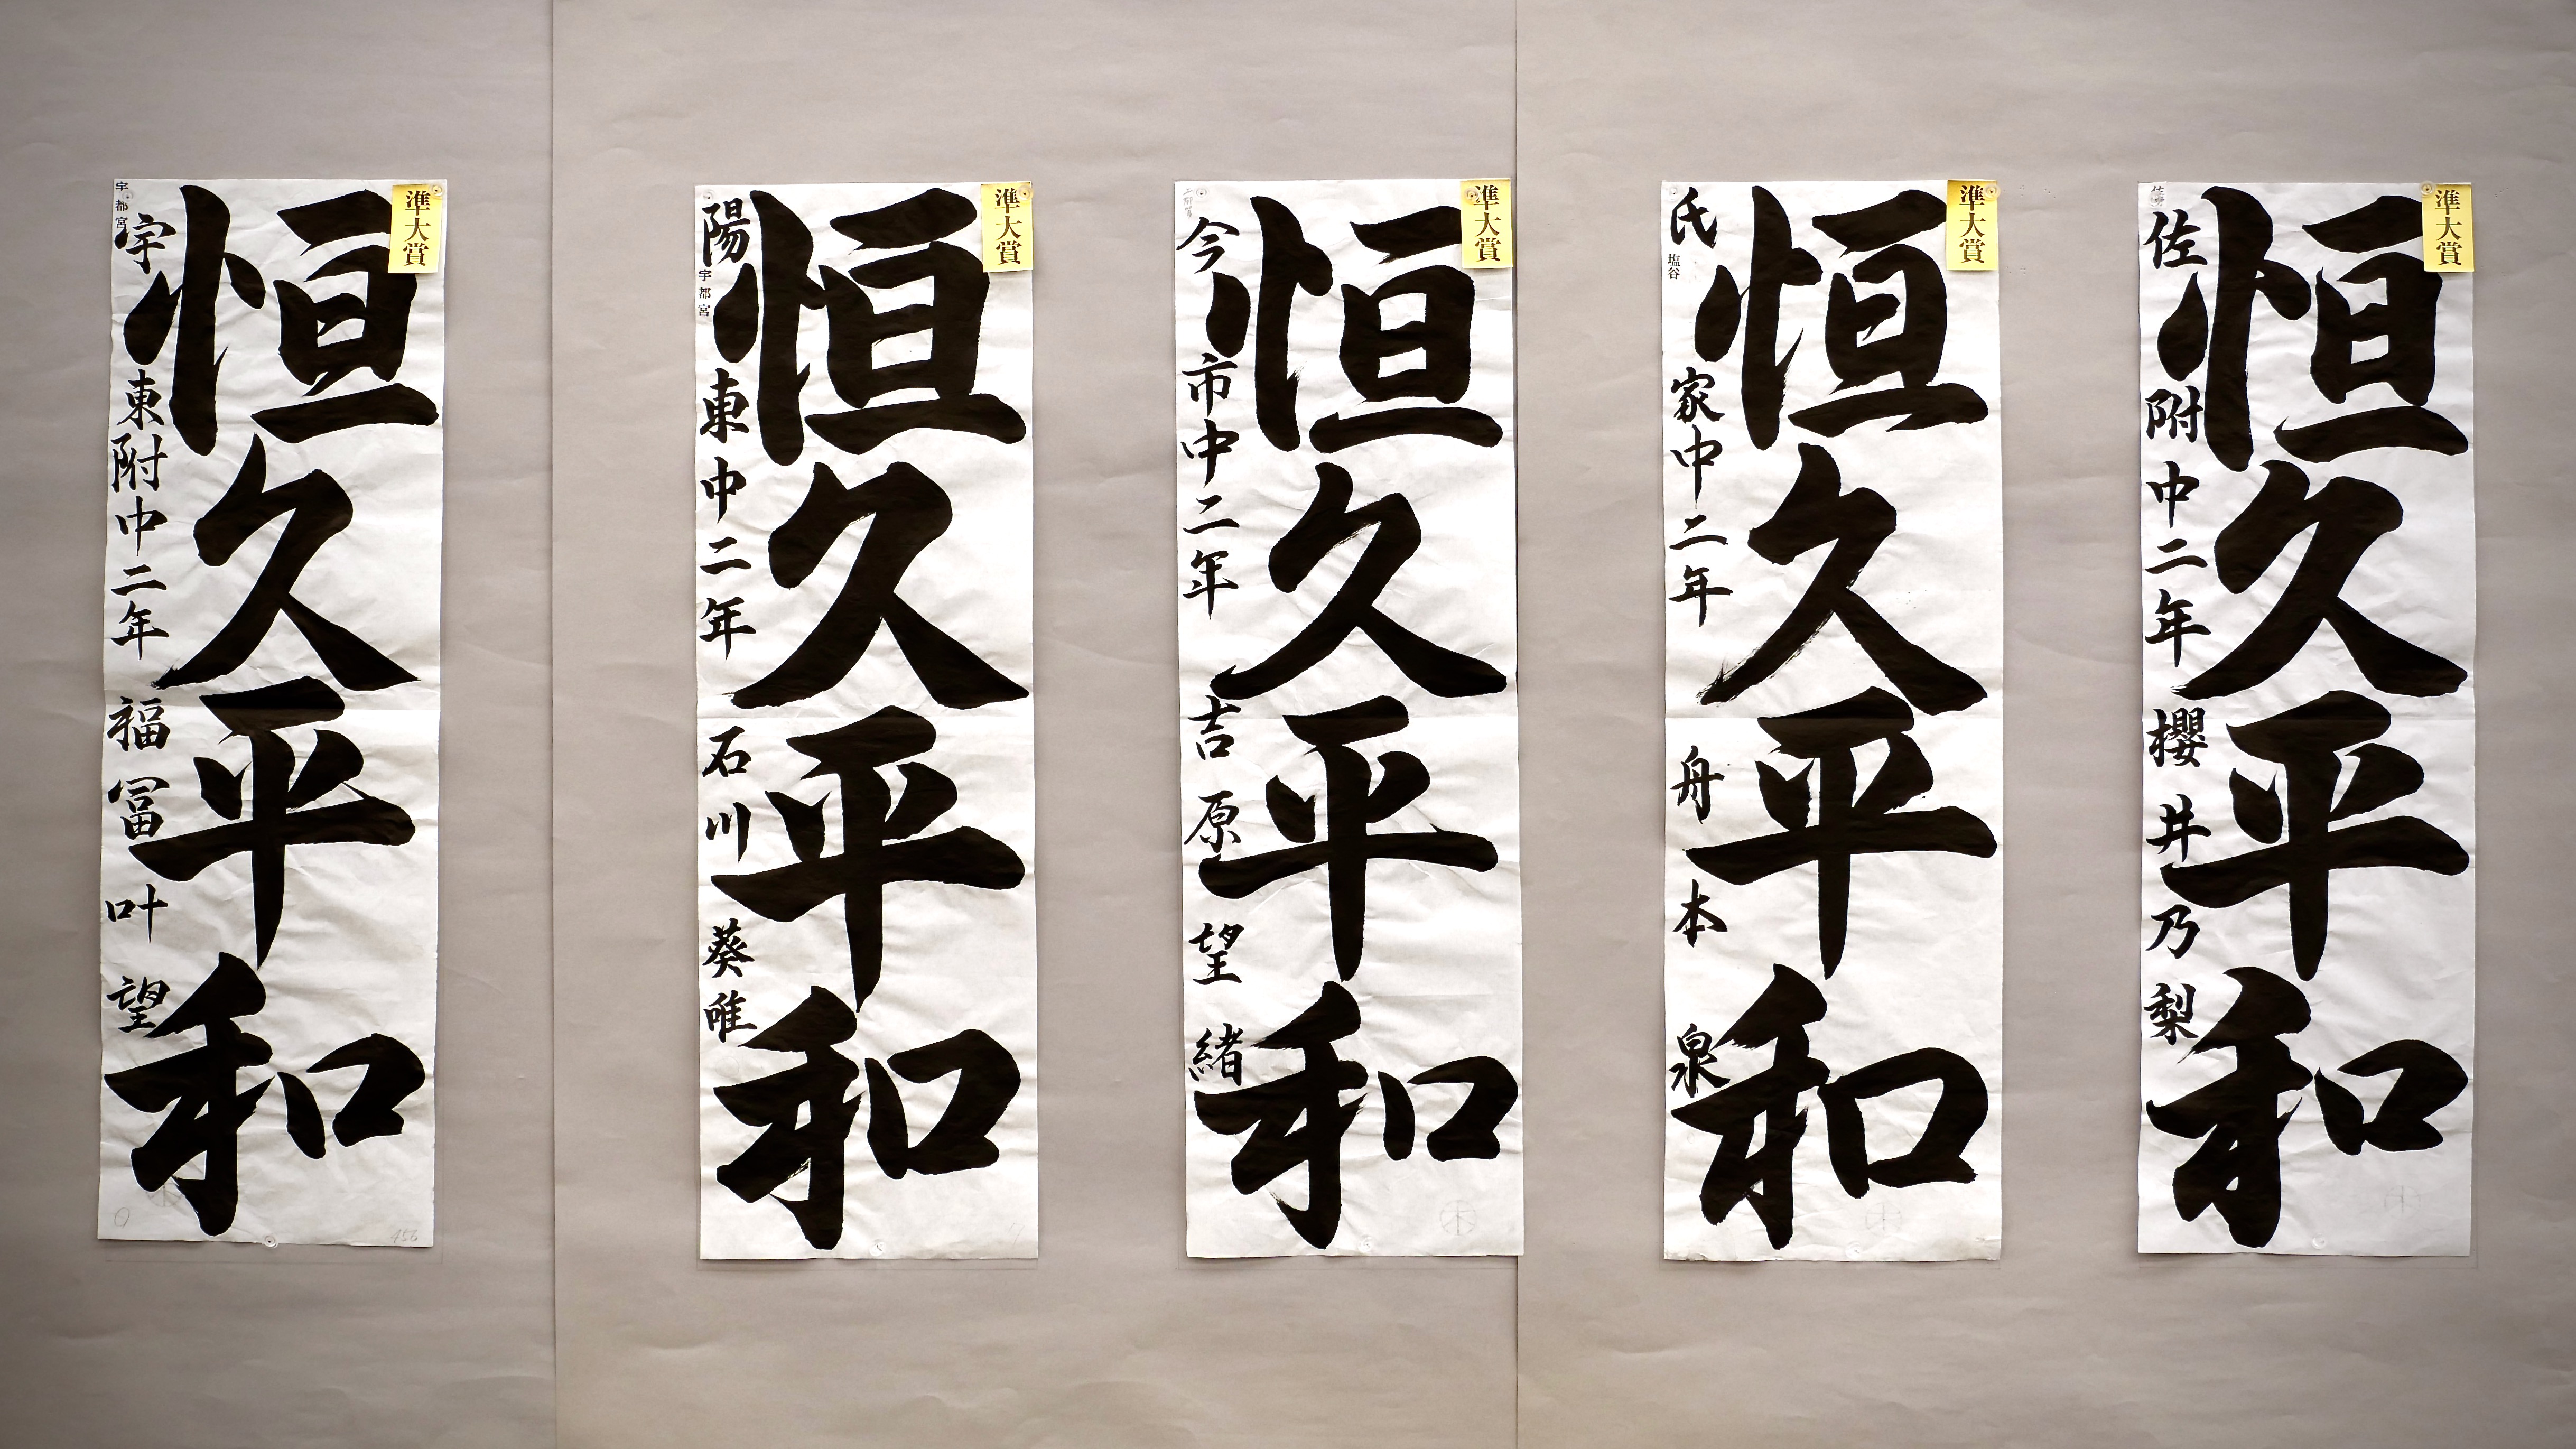 準大賞
恒久平和
宇都宮
宇東附中二年 福冨叶望
準大賞
恒久平和
宇都宮
陽東中二年 石川葵唯
準大賞
恒久平和
今市中二年 吉原望緒
準大賞
恒久平和
塩谷
氏家中二年 舟本泉
準大賞
恒久平和
佐附中二年 櫻井乃梨